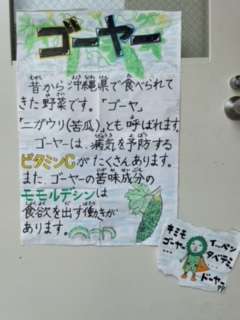 ゴーヤー
昔から沖縄県で食べられて
きた野菜です。「ゴーヤ」
「ニガウリ(苦瓜)」とも呼ばれます。
ゴーヤーは、病気を予防する
ビタミンCがたくさんあります。
また、ゴーヤーの苦味成分の
モモルデシンは
食欲を出す働きが
あります。
キミモ
ゴーヤー
イーペン
タベテミ